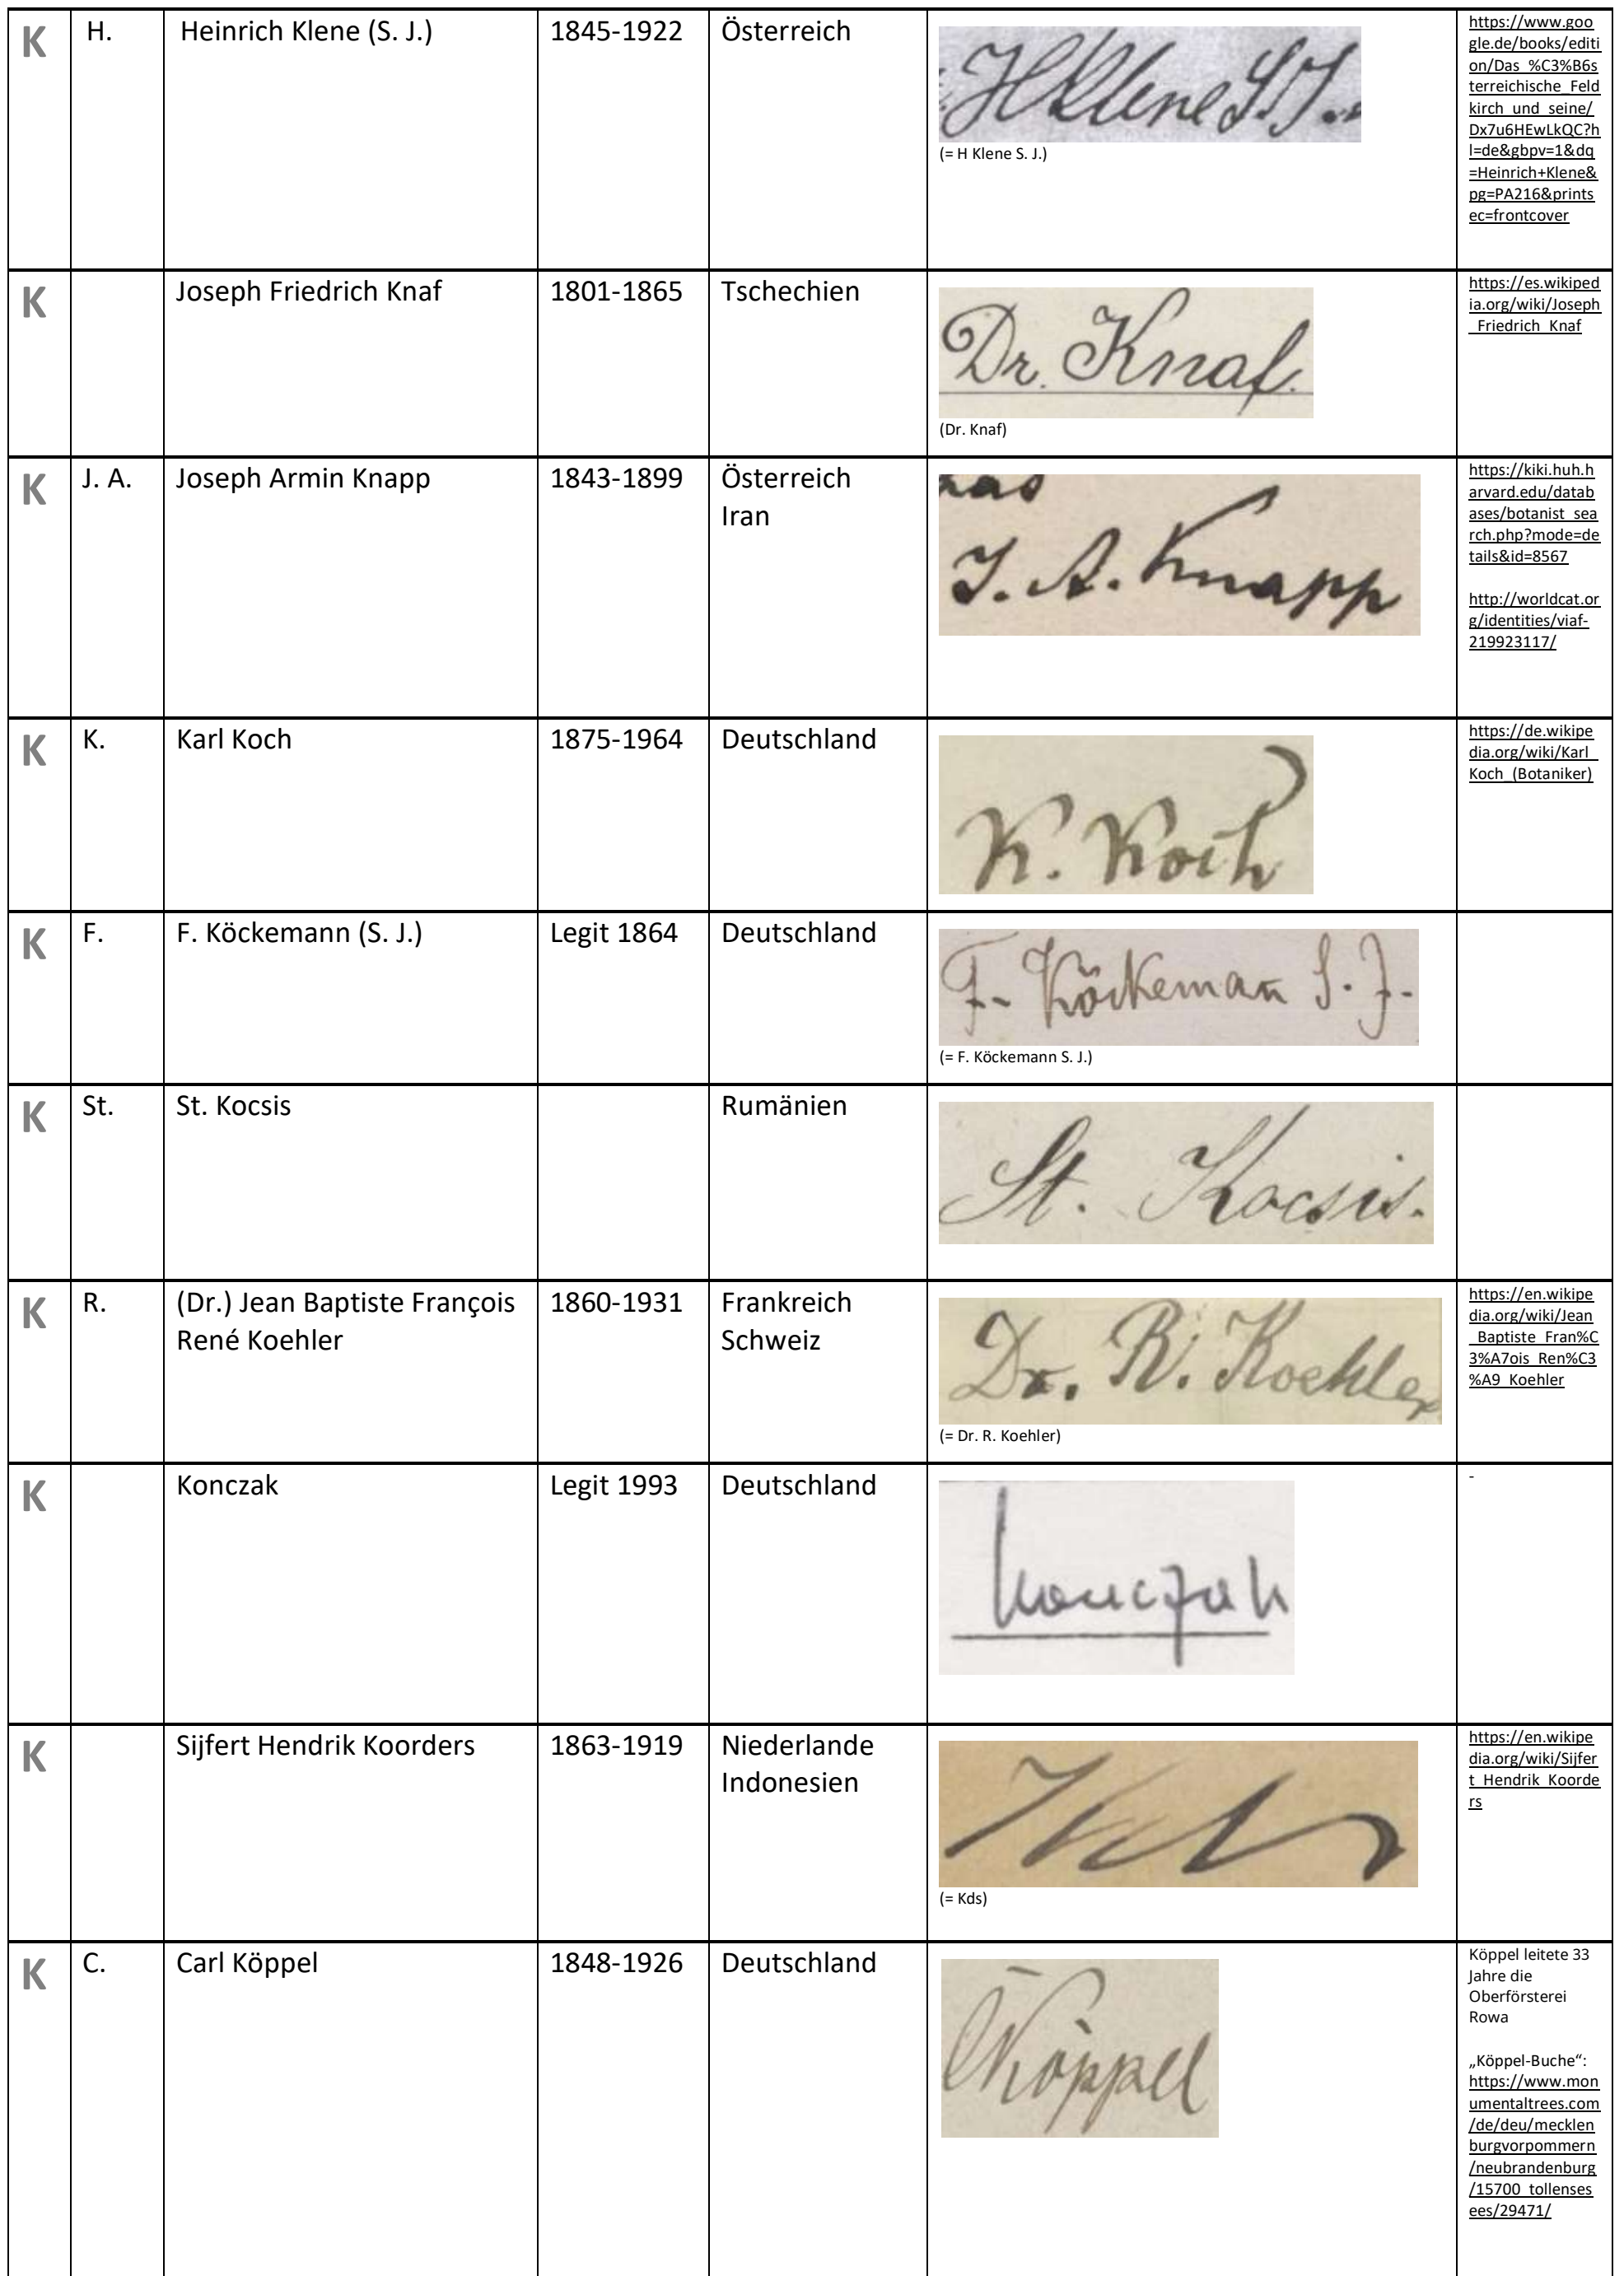 K H. Heinrich Klene (S. J.) 1845-1922 Österreich
H Klene S. J.
(= H Klene S. J.)
https://www.goo
gle.de/books/editi
on/Das_%C3%B6s
terreichische_Feld
kirch_und_seine/
Dx7u6HEwLkQC?h
l=de&gbpv=1&dq
=Heinrich+Klene&
pg=PA216&prints
ec=frontcover
K Joseph Friedrich Knaf 1801-1865 Tschechien
Dr. Knaf.
(Dr. Knaf)
https://es.wikiped
ia.org/wiki/Joseph
_Friedrich_Knaf
K J. A. Joseph Armin Knapp 1843-1899 Österreich
Iran
J. A. Knapp
https://kiki.huh.h
arvard.edu/datab
ases/botanist_sea
rch.php?mode=de
tails&id=8567
http://worldcat.or
g/identities/viaf-
219923117/
K K. Karl Koch 1875-1964 Deutschland
K. Koch
https://de.wikipe
dia.org/wiki/Karl_
Koch_(Botaniker)
K F. F. Köckemann (S. J.) Legit 1864 Deutschland
F. Köckeman̄ S. J.
(= F. Köckemann S. J.)
K St. St. Kocsis Rumänien
St. Kocsis.
K R. (Dr.) Jean Baptiste François 1860-1931 Frankreich
René Koehler Schweiz
Dr. R. Koehler
(= Dr. R. Koehler)
https://en.wikipe
dia.org/wiki/Jean
_Baptiste_Fran%C
3%A7ois_Ren%C3
%A9_Koehler
K Konczak Legit 1993 Deutschland -
Konczak
K Sijfert Hendrik Koorders 1863-1919 Niederlande
Indonesien
Kds
(= Kds)
https://en.wikipe
dia.org/wiki/Sijfer
t_Hendrik_Koorde
rs
K C. Carl Köppel 1848-1926 Deutschland
CKöppel
Köppel leitete 33
Jahre die
Oberförsterei
Rowa
„Köppel-Buche“:
https://www.mon
umentaltrees.com
/de/deu/mecklen
burgvorpommern
/neubrandenburg
/15700_tollenses
ees/29471/